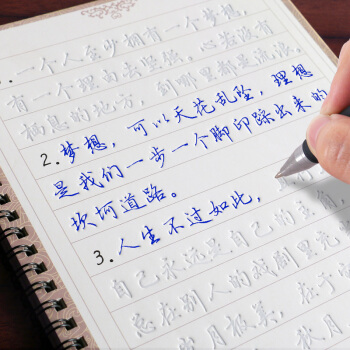 一个人至少拥有一个梦想，
有一个理由去坚强。心若没有
栖息的地方，到哪里都是流浪。
2.梦想，可以天花乱坠，理想
是我们一步一个脚印踩出来的
坎坷道路。
3.人生不过如此，
自己永远是自己的主角，
总在别人的戏剧里充
岁月极美，在于
秋月